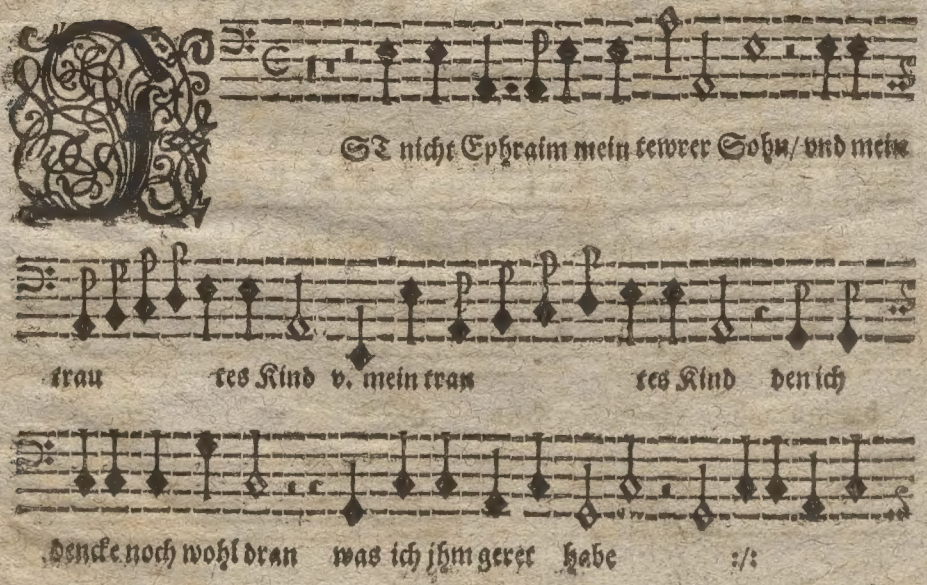 IST nicht Ephraim mein tewrer Sohn/ vnd mein
trau tes Kind v. mein trau tes Kind den ich
dencke noch wohl dran was ich jhm geret habe :/: